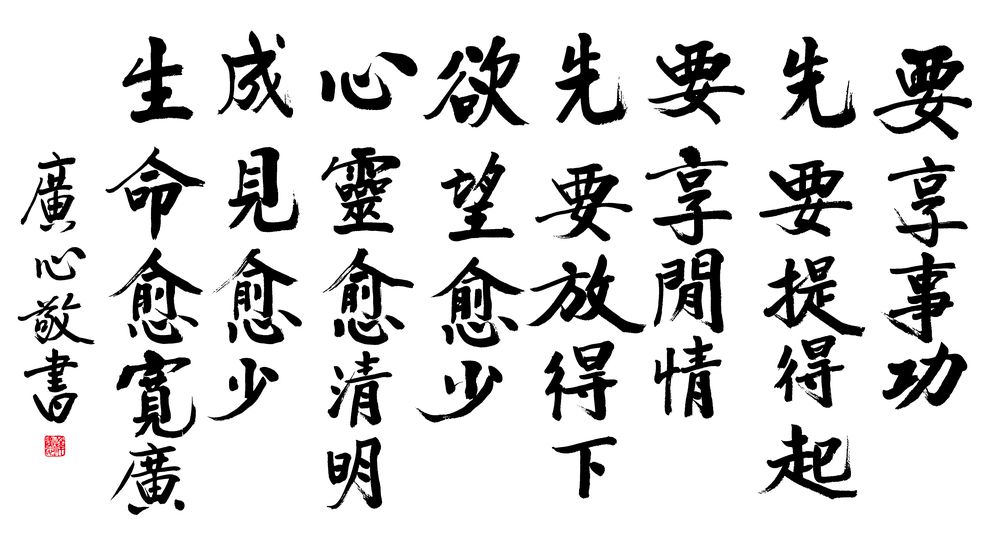 要享事功
先要提得起
要享閒情
先要放得下
欲望愈少
心靈愈清明
成見愈少
生命愈寬廣
廣心敬書